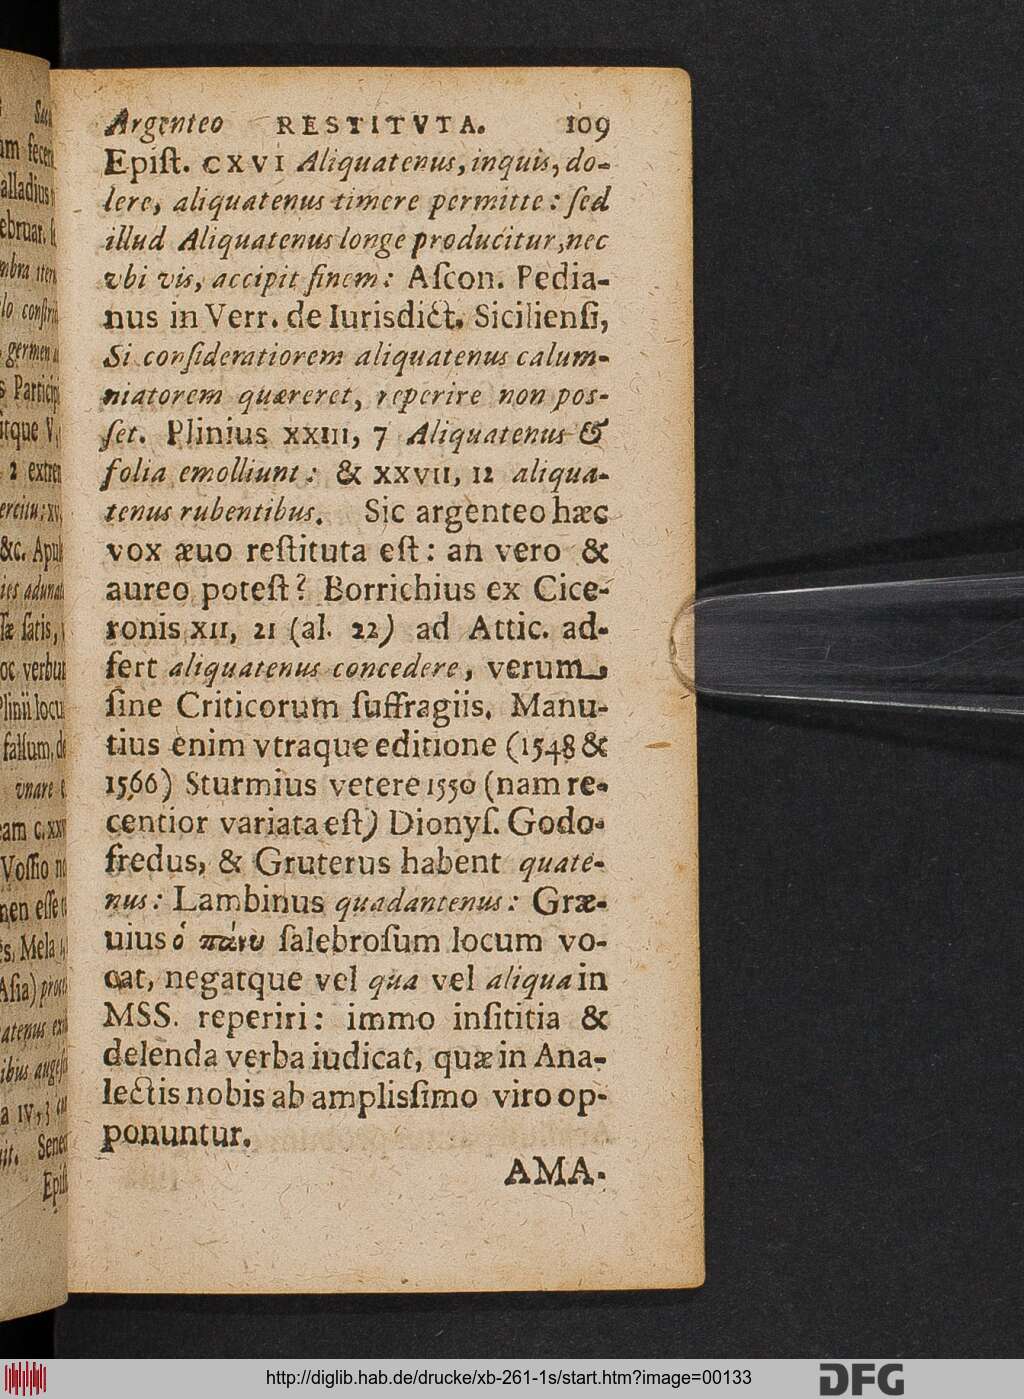 Argenteo RESTITVTA. 109
Epiſt. CXVI Aliquatenus, inquis, do-
lere, aliquatenus timere permitte: ſed
illud Aliquatenus longe producitur, nec
vbi vis, accipit finem: Aſcon. Pedia-
nus in Verr. de Iurisdict. Sicilienſi,
Si conſideratiorem aliquatenus calum-
niatorem quæreret, reperire non poſ-
ſet. Plinius XXIII, 7 Aliquatenus &
folia emolliunt: & XXVII, 12 aliqua-
tenus rubentibus. Sic argenteo hæc
vox æuo reſtituta eſt: an vero &
aureo poteſt? Borrichius ex Cice-
ronis XII, 21 (al. 22) ad Attic. ad-
fert aliquatenus concedere, verum
ſine Criticorum ſuffragiis. Manu-
tius enim vtraque editione (1548 &
1566) Sturmius vetere 1550 (nam re-
centior variata eſt) Dionyſ. Godo-
fredus, & Gruterus habent quate-
nus: Lambinus quadantenus: Græ-
uius ὁ πάνυ ſalebroſum locum vo-
cat, negatque vel qua vel aliqua in
MSS. reperiri: immo inſititia &
delenda verba iudicat, quæ in Ana-
lectis nobis ab ampliſſimo viro op-
ponuntur.
AMA-
http://diglib.hab.de/drucke/xb-261-1s/start.htm?image=00133
DFG